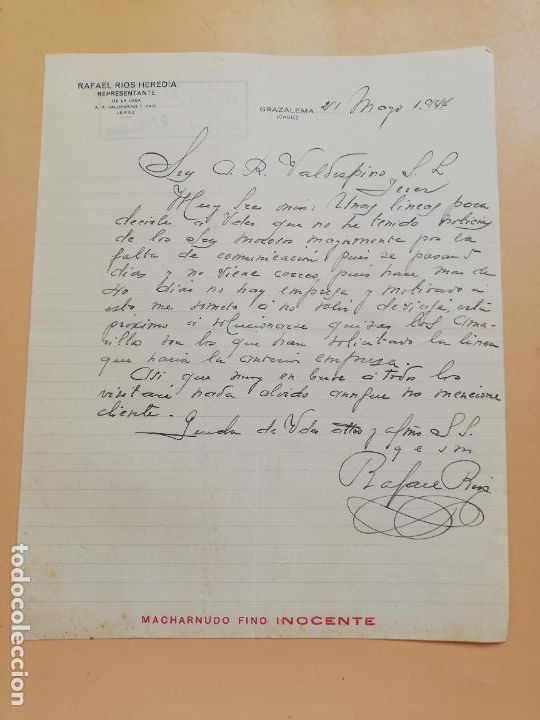 RAFAEL RIOS HEREDIA
REPRESENTANTE
DE LA CASA
A. R. VALDESPINO Y HNO.
JEREZ
GRAZALEMA 21 Mayo 1.944
(CADIZ)
A. R. Valdespino, S. L
Jerez
Muy Sres mios: Unas lineas para
decirle a Vdes que no he tenido noticias
de los Mayormente por la
falta de comunicación pues se pasan 5
dias y no viene correo, pues hace mas de
dias no hay empresa y motivado a
esto me someto a no salir de viaje, está
próximo a solucionarse quizas los Ama-
rillo son los que han solicitado la linea
que hacia la anterior empresa.
Asi que muy en breve a todo los
visitaré nada olvido aunque no mencione
cliente.
Queda de Vdes atto y afmo S. S.
q e s m
Rafael Rios
MACHARNUDO FINO INOCENTE
todocoleccion